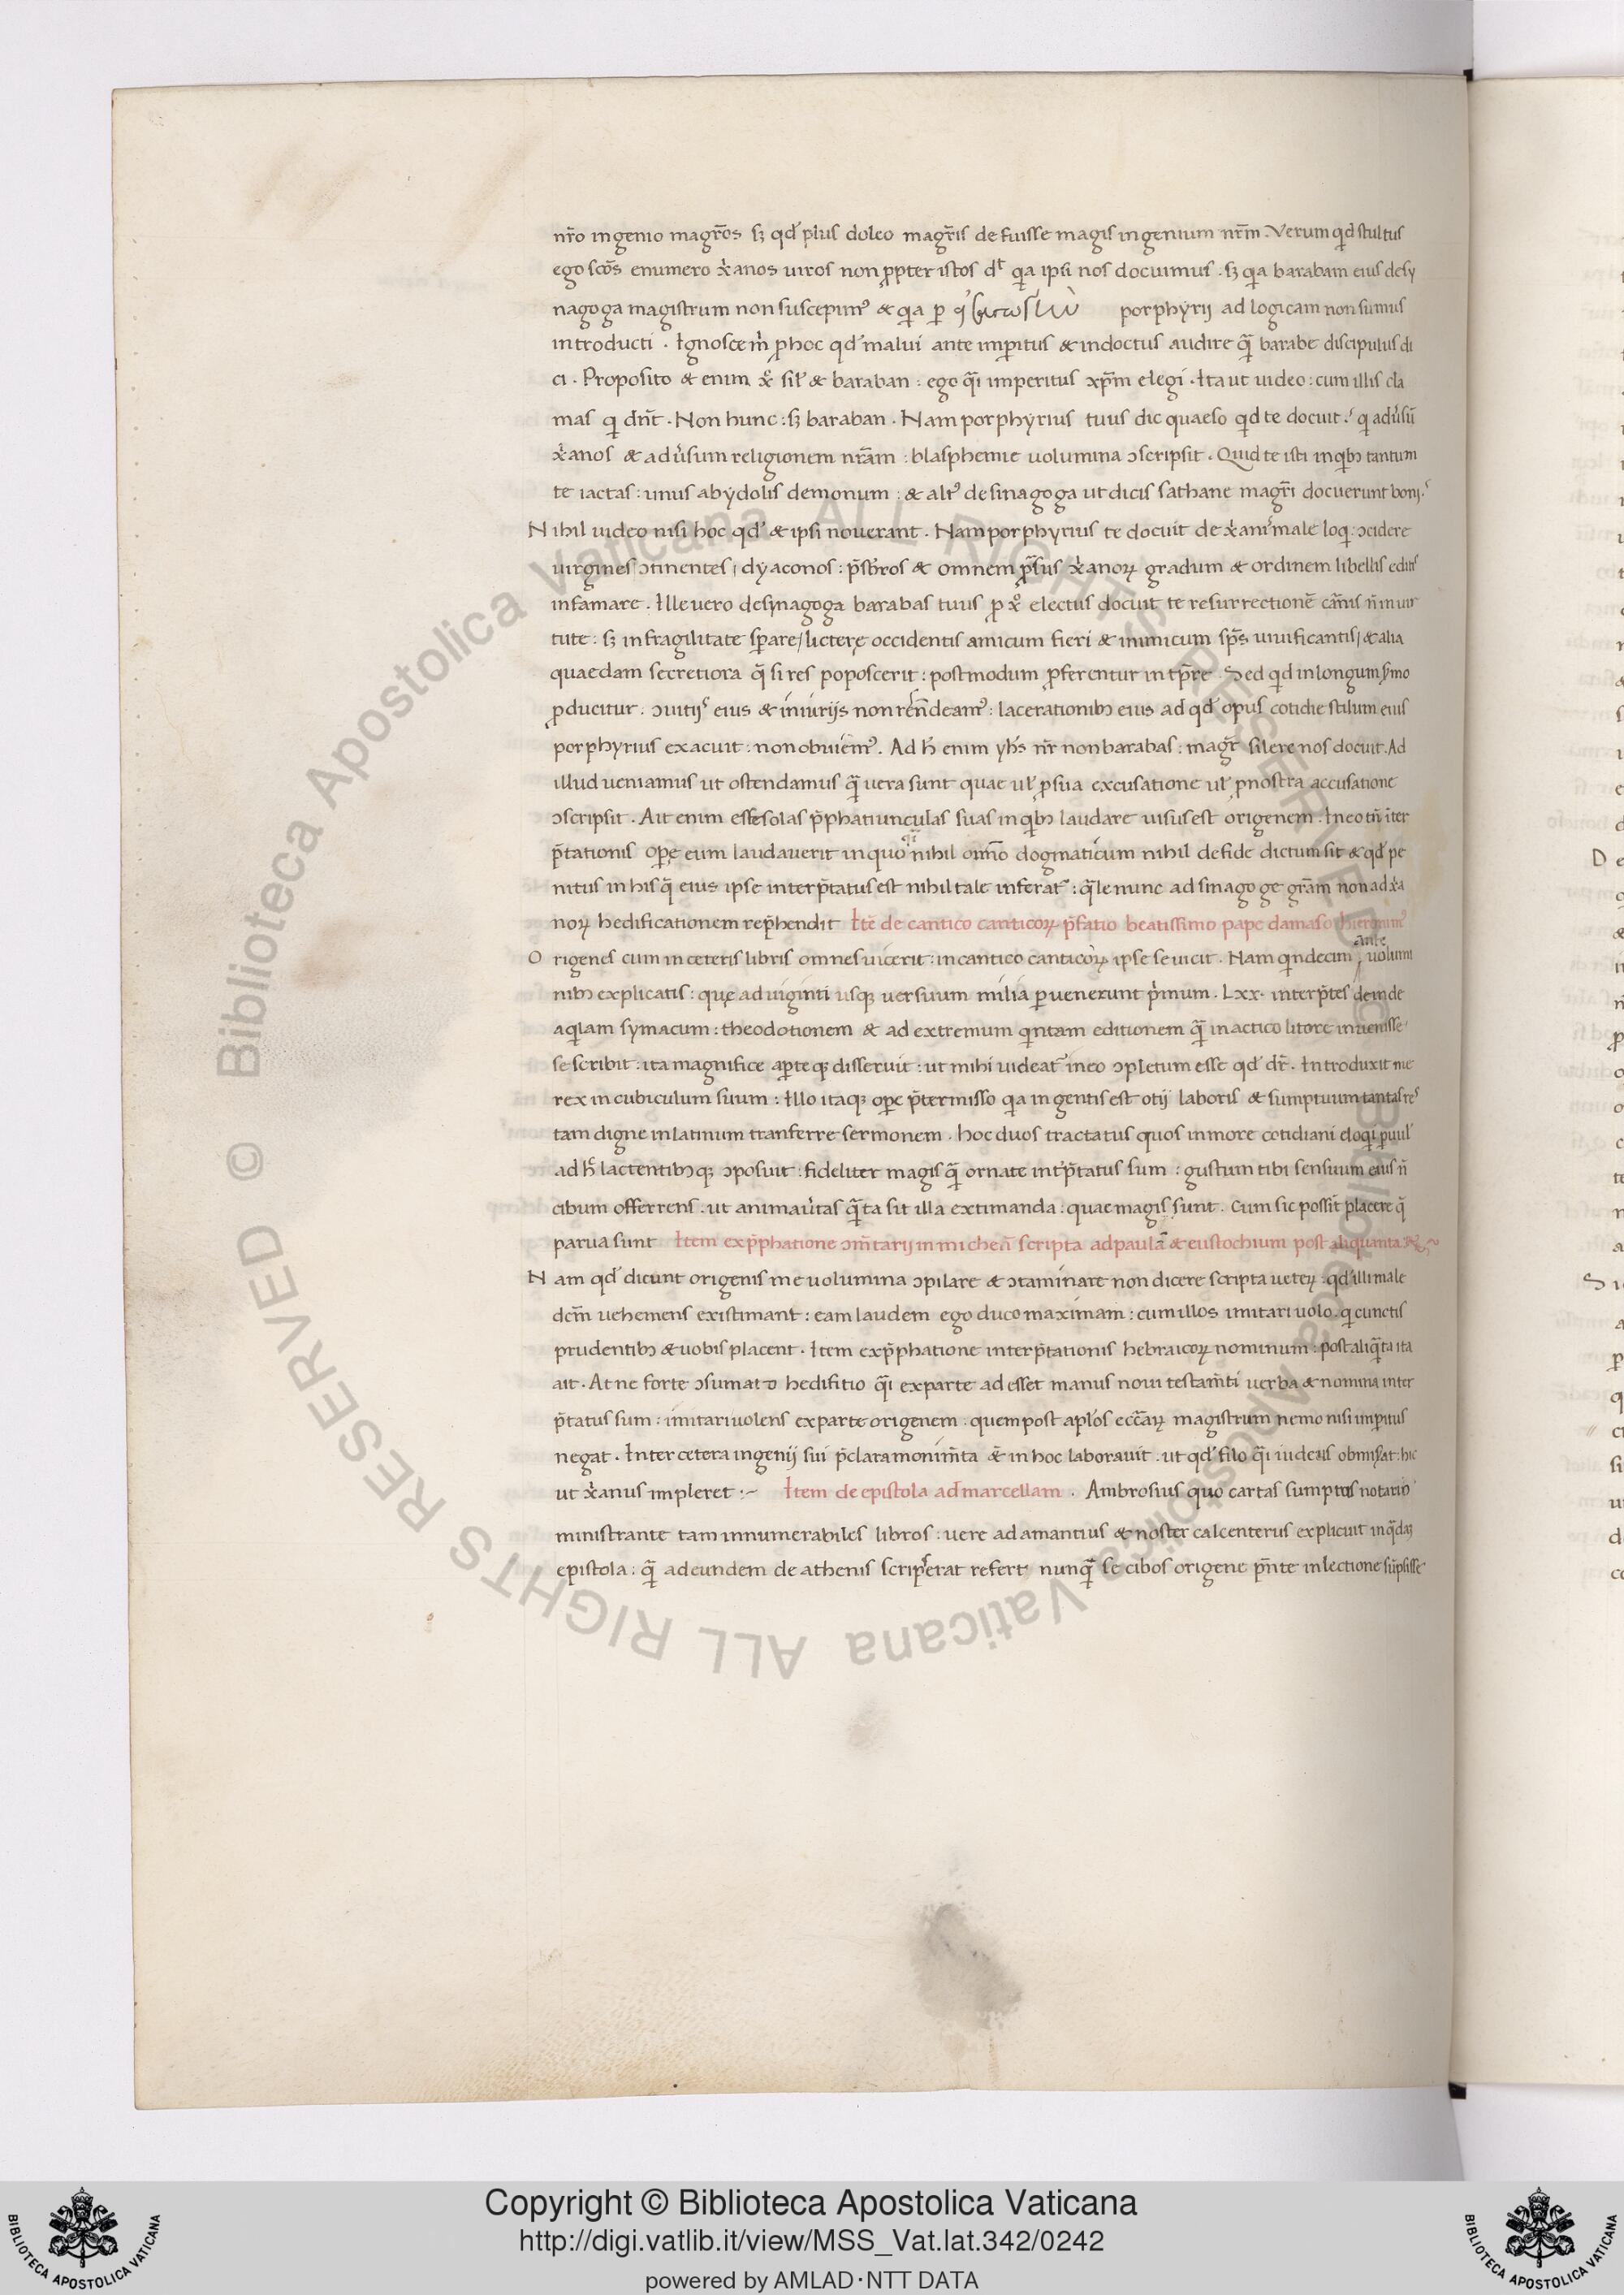 nr̄o ingenio magr̄os sꝫ qd' plus doleo magr̄is defuisse magis ingenium nr̄m. Verum qd stultus
ego sc̄os enumero xānos uiros non ꝓpter istos dt̄ qa ipsi nos docuimus. sꝫ qa barabam eius desy
nagoga magistrum non suscepim⁹ & qa ꝑ porphyrij ad logicam non sumus
introducti. Ignosce m̄ ꝓ hoc qd' malui ante imꝑitus & indoctus audire qᷓ barabe discipulus di
ci. Proposito & enim xp̄o sil' & baraban: ego qᷓi imperitus xp̄m elegi. Ita ut uideo: cum illis cla
mas qi dn̄t. Non hunc: sꝫ baraban. Nam porphyrius tuus dic quaeso qd te docuit. qi aduͥsū
xānos & aduͥsum religionem nr̄am: blasphemie uolumina ɔscripsit. Quid te isti in qibꝫ tantum
te iactas: unus ab ydolis demonum: & alt⁹ de sinagoga ut dicis sathane magr̄i docuerunt boni.
Nihil uideo nisi hoc qd' & ipsi nouerant. Nam porphyrius te docuit de xānis male loqi: ɔcidere
uirgines ɔtinentes, dyaconos: p̄sbr̄os & omnem ꝓrsus xānoꝝ gradum & ordinem libellis editis
infamare. Ille uero de synagoga barabas tuus ꝓ xp̄o electus docuit te resurrectionē carnis n̄ in uir
tute: sꝫ in fragilitate sꝑare, lictere occidentis amicum fieri & inimicum sp̄s uiuificantis, & alia
quaedam secretiora q̄ si res poposcerit: postmodum ꝓferentur in tp̄re. Sed qd in longum s̄mo
ꝓducitur. ɔuitijs eius & iniurijs non rn̄deam⁹: lacerationibꝫ eius ad qd' opus cotidie stilum eius
porphyrius exacuit: non obuiem⁹. Ad h̄ enim yh̄s nr̄ non barabas: magr̄ silere nos docuit. Ad
illud ueniamus ut ostendamus qᷓ uera sunt quae ul' ꝓ sua excusatione ul' ꝓ nostra accusatione
ɔscripsit. Ait enim esse solas p̄phatiunculas suas in qibꝫ laudare uisus est origenem. In eo tn̄ iter
p̄tationis oꝑe eum laudauerit in quo nihil om̄o dogmaticum nihil de fide dictum sit & qd' pe
nitus in his q̄ eius ipse interp̄tatus est nihil tale inferat⁹: qᷓle nunc ad sinagoge gr̄am non ad xa
noꝝ hedificationem rep̄hendit Itē de cantico canticoꝝ p̄fatio beatissimo pape damaso hieronim⁹
Origenes cum in ceteris libris omnes uicerit: in cantico canticoꝝ ipse se uicit. Nam qindecim ante uolumi
nibꝫ explicatis: quę ad uiginti usqꝫ uersuum milia ꝑuenerunt pͥmum. Lxx. interp̄tes deinde
aqilam symacum: theodotionem & ad extremum qintam editionem qᷓ in actico litore inuenisse
se scribit: ita magnifice aꝑteqꝫ disseruit: ut mihi uideat⁹ in eo ɔpletum esse qd' dr̄. Introduxit me
rex in cubiculum suum: Illo itaqꝫ oꝑe p̄termisso qia ingentis est otij laboris & sumptuum tantas res
tam digne in latinum tranferre sermonem. hoc duos tractatus quos in more cotidiani eloqi ꝑuul'
ad h̄ lactentibꝫqꝫ ɔposuit: fideliter magis qᷓ ornate int'p̄tatus sum: gustum tibi sensuum eius n̄
cibum offerrens. ut animauͥtas qᷓta sit illa extimanda: quae magis sunt. Cum sic possit placere q̄
parua sunt Item ex p̄phatione ɔm̄tarij in michen̄ scripta ad paulā & eustochium post aliquanta
Nam qd' dicunt origenis me uolumina ɔpilare & ɔtaminare non dicere scripta ueteꝝ: qd' illi male
dcm̄ uehemens existimant: eam laudem ego duco maximam: cum illos imitari uolo. qi cunctis
prudentibꝫ & uobis placent. Item ex p̄phatione interp̄tationis hebraicoꝝ nominum: post aliqᷓta ita
ait. At ne forte ɔsumato hedifitio qᷓi ex parte ad esset manus noui testam̄ti uerba & nomina inter
p̄tatus sum: imitari uolens ex parte origenem: quem post apl'os ecc̄aꝝ magistrum nemo nisi imꝑitus
negat. Inter cetera ingenij sui p̄clara monim̄ta & in hoc laborauit. ut qd' filo qᷓi iudeus obmiserat: hic
ut xānus impleret:~ Item de epistola ad marcellam. Ambrosius quo cartas sumptos notarijs
ministrante tam innumerabiles libros: uere adamantius & noster calcenterus explicuit in qᷓdaꝫ
epistola: qᷓ ad eundem de athenis scripserat refert nunqᷓ se cibos origene p̄nte in lectione sūpsisse
Copyright © Biblioteca Apostolica Vaticana
http://digi.vatlib.it/view/MSS_Vat.lat.342/0242
powered by AMLAD·NTT DATA